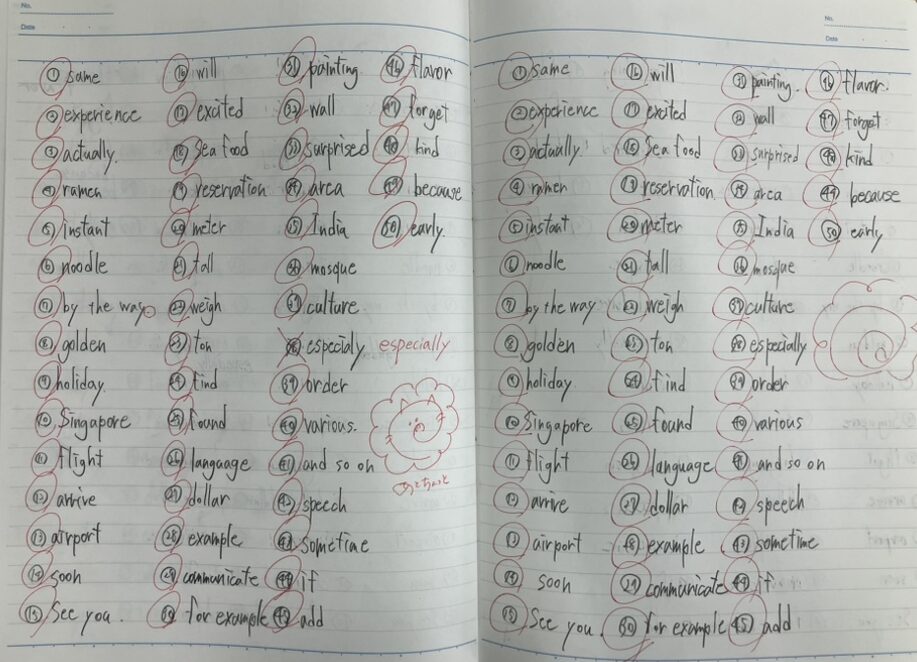 No.
Date
① same
② experience
③ actually.
④ ramen
⑤ instant
⑥ noodle
⑦ by the way
⑧ golden
⑨ holiday
⑩ Singapore
⑪ flight
⑫ arrive
⑬ airport
⑭ soon
⑮ See you.
⑯ will
⑰ excited
⑱ Sea food
⑲ reservation
⑳ meter
㉑ tall
㉒ weigh
㉓ ton
㉔ find
㉕ found
㉖ language
㉗ dollar
㉘ example
㉙ communicate
㉚ for example
㉛ painting
㉜ wall
㉝ surprised
㉞ area
㉟ India
㊱ mosque
㊲ culture
㊳ especialy especially
㊴ order
㊵ various.
㊶ and so on
㊷ speech
㊸ sometime
㊹ if
㊺ add
㊻ flavor
㊼ forget
㊽ kind
㊾ because
㊿ early.
No.
Date
① same
② experience
③ actually.
④ ramen
⑤ instant
⑥ noodle
⑦ by the way
⑧ golden
⑨ holiday
⑩ Singapore
⑪ flight
⑫ arrive
⑬ airport
⑭ soon
⑮ See you.
⑯ will
⑰ excited
⑱ Sea food
⑲ reservation.
⑳ meter
㉑ tall
㉒ weigh
㉓ ton
㉔ find
㉕ found
㉖ language
㉗ dollar
㉘ example
㉙ communicate
㉚ for example
㉛ painting.
㉜ wall
㉝ surprised
㉞ area
㉟ India
㊱ mosque
㊲ culture
㊳ especially
㊴ order
㊵ various
㊶ and so on
㊷ speech
㊸ sometime
㊹ if
㊺ add
㊻ flavor.
㊼ forget
㊽ kind
㊾ because
㊿ early